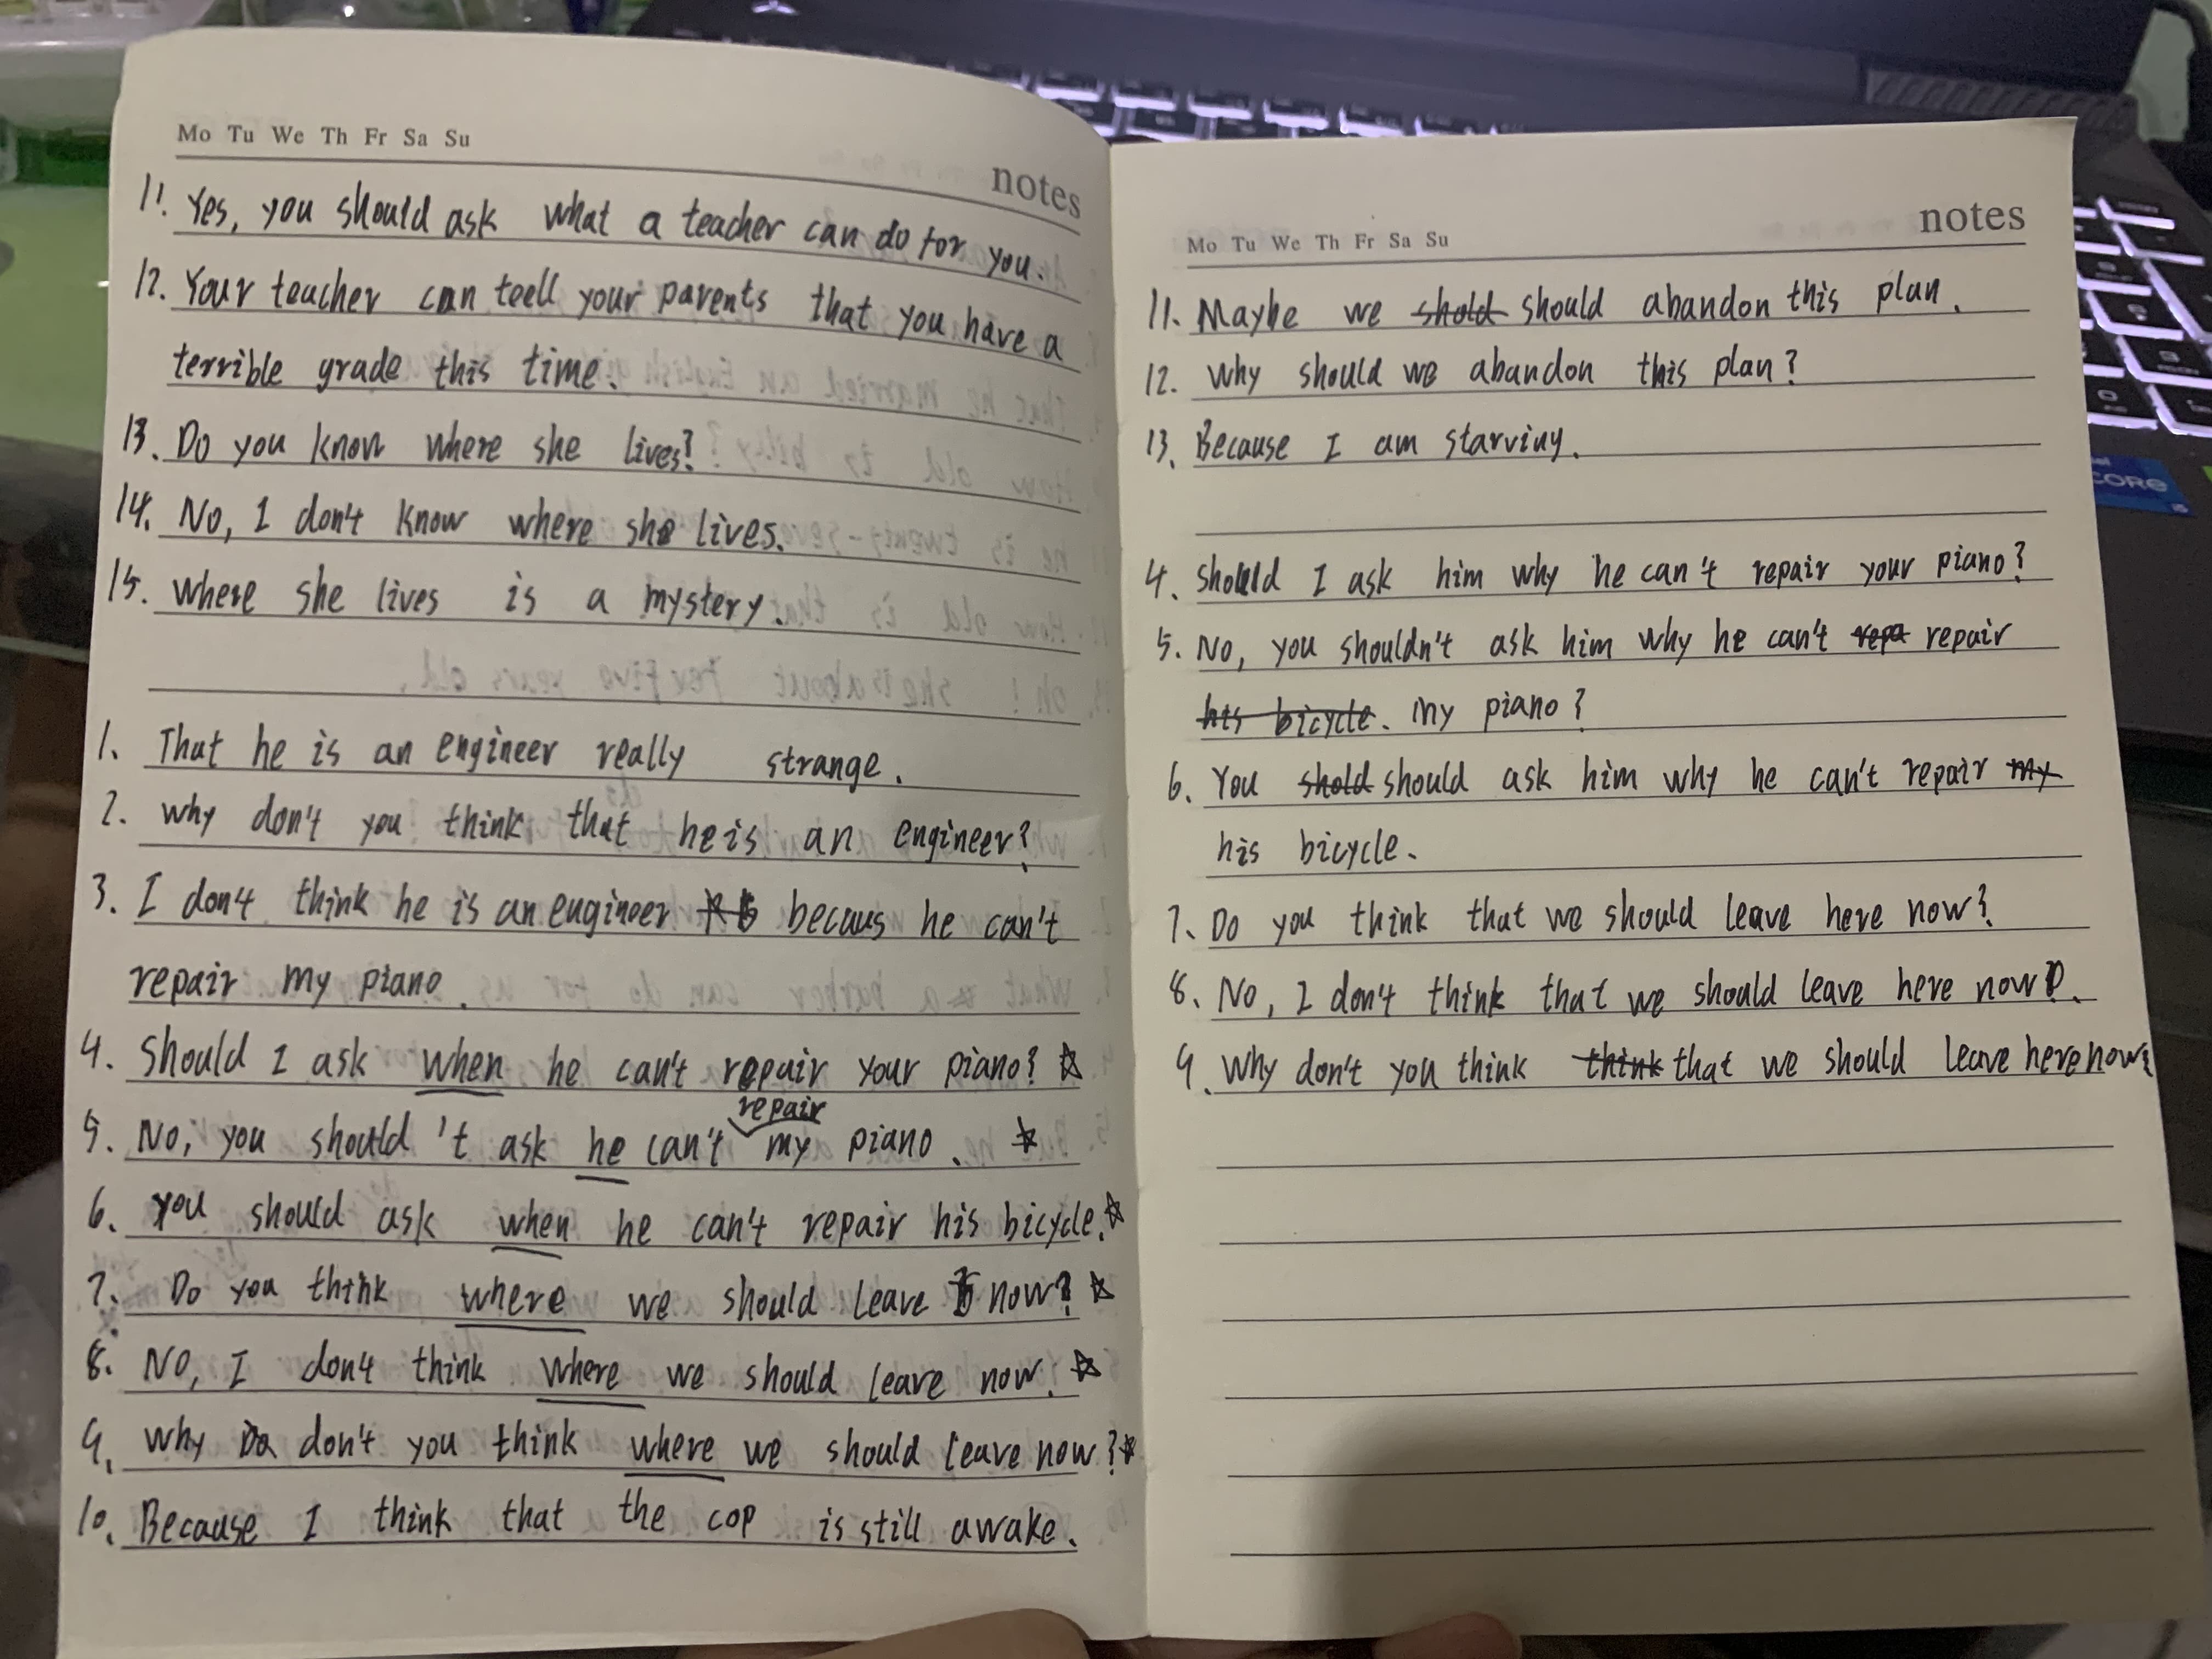 Mo Tu We Th Fr Sa Su
notes
11. Yes, you should ask what a teacher can do for you.
12. Your teacher can teell your parents that you have a
terrible grade this time.
13. Do you know where she lives?
14. No, I don't know where she lives.
15. where she lives is a mystery.
1. That he is an engineer really strange.
2. why don't you think that he is an engineer?
3. I don't think he is an engineer becaus he can't
repair my piano.
4. Should I ask when he can't repair your piano? ☆
repair
5. No, you should 't ask he can't my piano. ☆
6. you should ask when he can't repair his bicycle. ☆
7. Do you think where we should leave now? ☆
8. NO, I don't think where we should leave now. ☆
9. why don't you think where we should leave now? ☆
10. Because I think that the cop is still awake.
Mo Tu We Th Fr Sa Su
notes
11. Maybe we shold should abandon this plan.
12. why should we abandon this plan?
13. Because I am starving.
4. should I ask him why he can't repair your piano?
5. No, you shouldn't ask him why he can't repa repair
his bicycle. my piano?
6. You shold should ask him why he can't repair my
his bicycle.
7. Do you think that we should leave here now?
8. No, I don't think that we should leave here now.
9. Why don't you think think that we should leave here now?
CORE